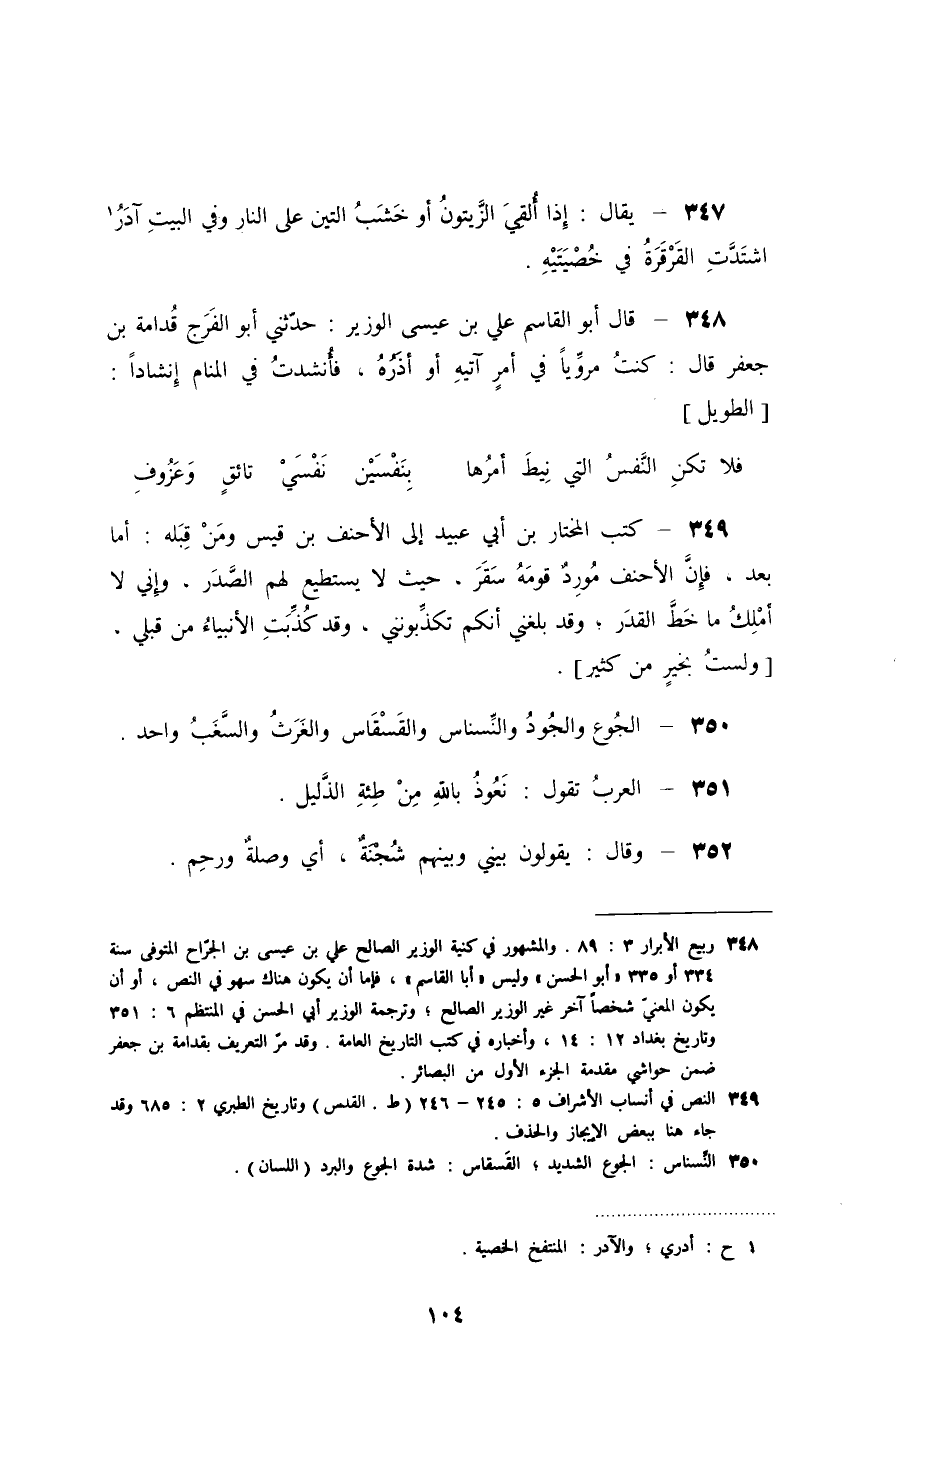 ٣٤٧ – يقال : إذا أُلقِيَ الزَّيتونُ أو خَشَبُ التين على النار وفي البيتِ آدَرُ١
اشتَدَّتِ القَرْقَرَةُ في خُصْيَتَيْهِ .
٣٤٨ – قال أبو القاسم علي بن عيسى الوزير : حدّثني أبو الفَرَج قُدامة بن
جعفر قال : كنتُ مروِّياً في أمرٍ آتيهِ أو أذَرُهُ ، فأُنشدتُ في المنام إنشاداً :
[ الطويل ]
فلا تكنِ النَّفسُ التي نِيطَ أمرُها بِنَفْسَيْن نَفْسَيْ تائقٍ وَعَزُوفِ
٣٤٩ – كتب المختار بن أبي عبيد إلى الأحنف بن قيس ومَنْ قِبَله : أما
بعد ، فإنَّ الأحنف مُورِدٌ قومَهُ سَقَرَ ، حيث لا يستطيع لهم الصَّدَر ، وإني لا
أمْلِكُ ما خَطَّ القدَر ؛ وقد بلغني أنكم تكذِّبونني ، وقد كُذِّبَتِ الأنبياءُ من قبلي ،
[ ولستُ بخيرٍ من كثير ] .
٣٥٠ – الجُوع والجُودُ والنِّسناس والقَسْقَاس والغَرَثُ والسَّغَبُ واحد .
٣٥١ – العربُ تقول : نَعُوذُ باللهِ مِنْ طِئةِ الذَّليل .
٣٥٢ – وقال : يقولون بيني وبينهم شُجْنَةٌ ، أي وصلةٌ ورحِم .
٣٤٨ ربيع الأبرار ٣ : ٨٩ . والمشهور في كنية الوزير الصالح علي بن عيسى بن الجرّاح المتوفى سنة
٣٣٤ أو ٣٣٥ « أبو الحسن » وليس « أبا القاسم » ، فإما أن يكون هناك سهو في النص ، أو أن
يكون المعنيّ شخصاً آخر غير الوزير الصالح ؛ وترجمة الوزير أبي الحسن في المنتظم ٦ : ٣٥١
وتاريخ بغداد ١٢ : ١٤ ، وأخباره في كتب التاريخ العامة . وقد مرّ التعريف بقدامة بن جعفر
ضمن حواشي مقدمة الجزء الأول من البصائر .
٣٤٩ النص في أنساب الأشراف ٥ : ٢٤٥ – ٢٤٦ ( ط . القدس ) وتاريخ الطبري ٢ : ٦٨٥ وقد
جاء هنا ببعض الإيجاز والحذف .
٣٥٠ النِّسناس : الجوع الشديد ؛ القَسقاس : شدة الجوع والبرد ( اللسان ) .
١ ح : أدري ؛ والآدر : المنتفخ الخصية .
١٠٤